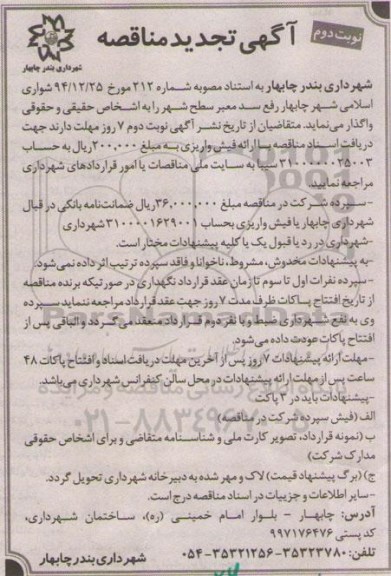 نوبت دوم
آگهی تجدید مناقصه
شهرداری بندر چابهار
شهرداری بندر چابهار به استناد مصوبه شماره ۲۱۲ مورخ ۹۴/۱۲/۲۵ شورای
اسلامی شهر چابهار رفع سد معبر سطح شهر را به اشخاص حقیقی و حقوقی
واگذار می‌نماید. متقاضیان از تاریخ نشر آگهی نوبت دوم ۷ روز مهلت دارند جهت
دریافت اسناد مناقصه با ارائه فیش واریزی به مبلغ ۲۰۰,۰۰۰ ریال به حساب
سیبا به سایت ملی مناقصات یا امور قراردادهای شهرداری
مراجعه نمایید.
-سپرده شرکت در مناقصه مبلغ ۳۶,۰۰۰,۰۰۰ ریال ضمانت‌نامه بانکی در قبال
شهرداری چابهار یا فیش واریزی بحساب ۳۱۰۰۰۰۱۶۲۹۰۰۱ شهرداری
-شهرداری در رد یا قبول یک یا کلیه پیشنهادات مختار است.
-به پیشنهادات مخدوش، مشروط، ناخوانا و فاقد سپرده ترتیب اثر داده نمی‌شود.
-سپرده نفرات اول تا سوم تا زمان عقد قرارداد نگهداری در صورتیکه برنده مناقصه
از تاریخ افتتاح پاکات ظرف مدت ۷ روز جهت عقد قرارداد مراجعه ننماید سپرده
وی به نفع شهرداری ضبط و با نفر دوم قرارداد منعقد می‌گردد و الباقی پس از
افتتاح پاکات عودت داده می‌شود.
-مهلت ارائه پیشنهادات ۷ روز پس از آخرین مهلت دریافت اسناد و افتتاح پاکات ۴۸
ساعت پس از مهلت ارائه پیشنهادات در محل سالن کنفرانس شهرداری می‌باشد.
-پیشنهادات باید در ۳ پاکت
الف (فیش سپرده شرکت در مناقصه)
ب (نمونه قرارداد، تصویر کارت ملی و شناسنامه متقاضی و برای اشخاص حقوقی
مدارک شرکت)
ج) (برگ پیشنهاد قیمت) لاک و مهر شده به دبیرخانه شهرداری تحویل گردد.
-سایر اطلاعات و جزییات در اسناد مناقصه درج است.
آدرس: چابهار - بلوار امام خمینی (ره)، ساختمان شهرداری،
کد پستی ۹۹۷۱۷۶۴۷۶
تلفن: ۳۵۳۲۳۷۸۰-۳۵۳۲۱۲۵۶-۰۵۴
شهرداری بندر چابهار
ParsNamadData
۰۲۱-۸۸۳۴۹۶۷۰-۵